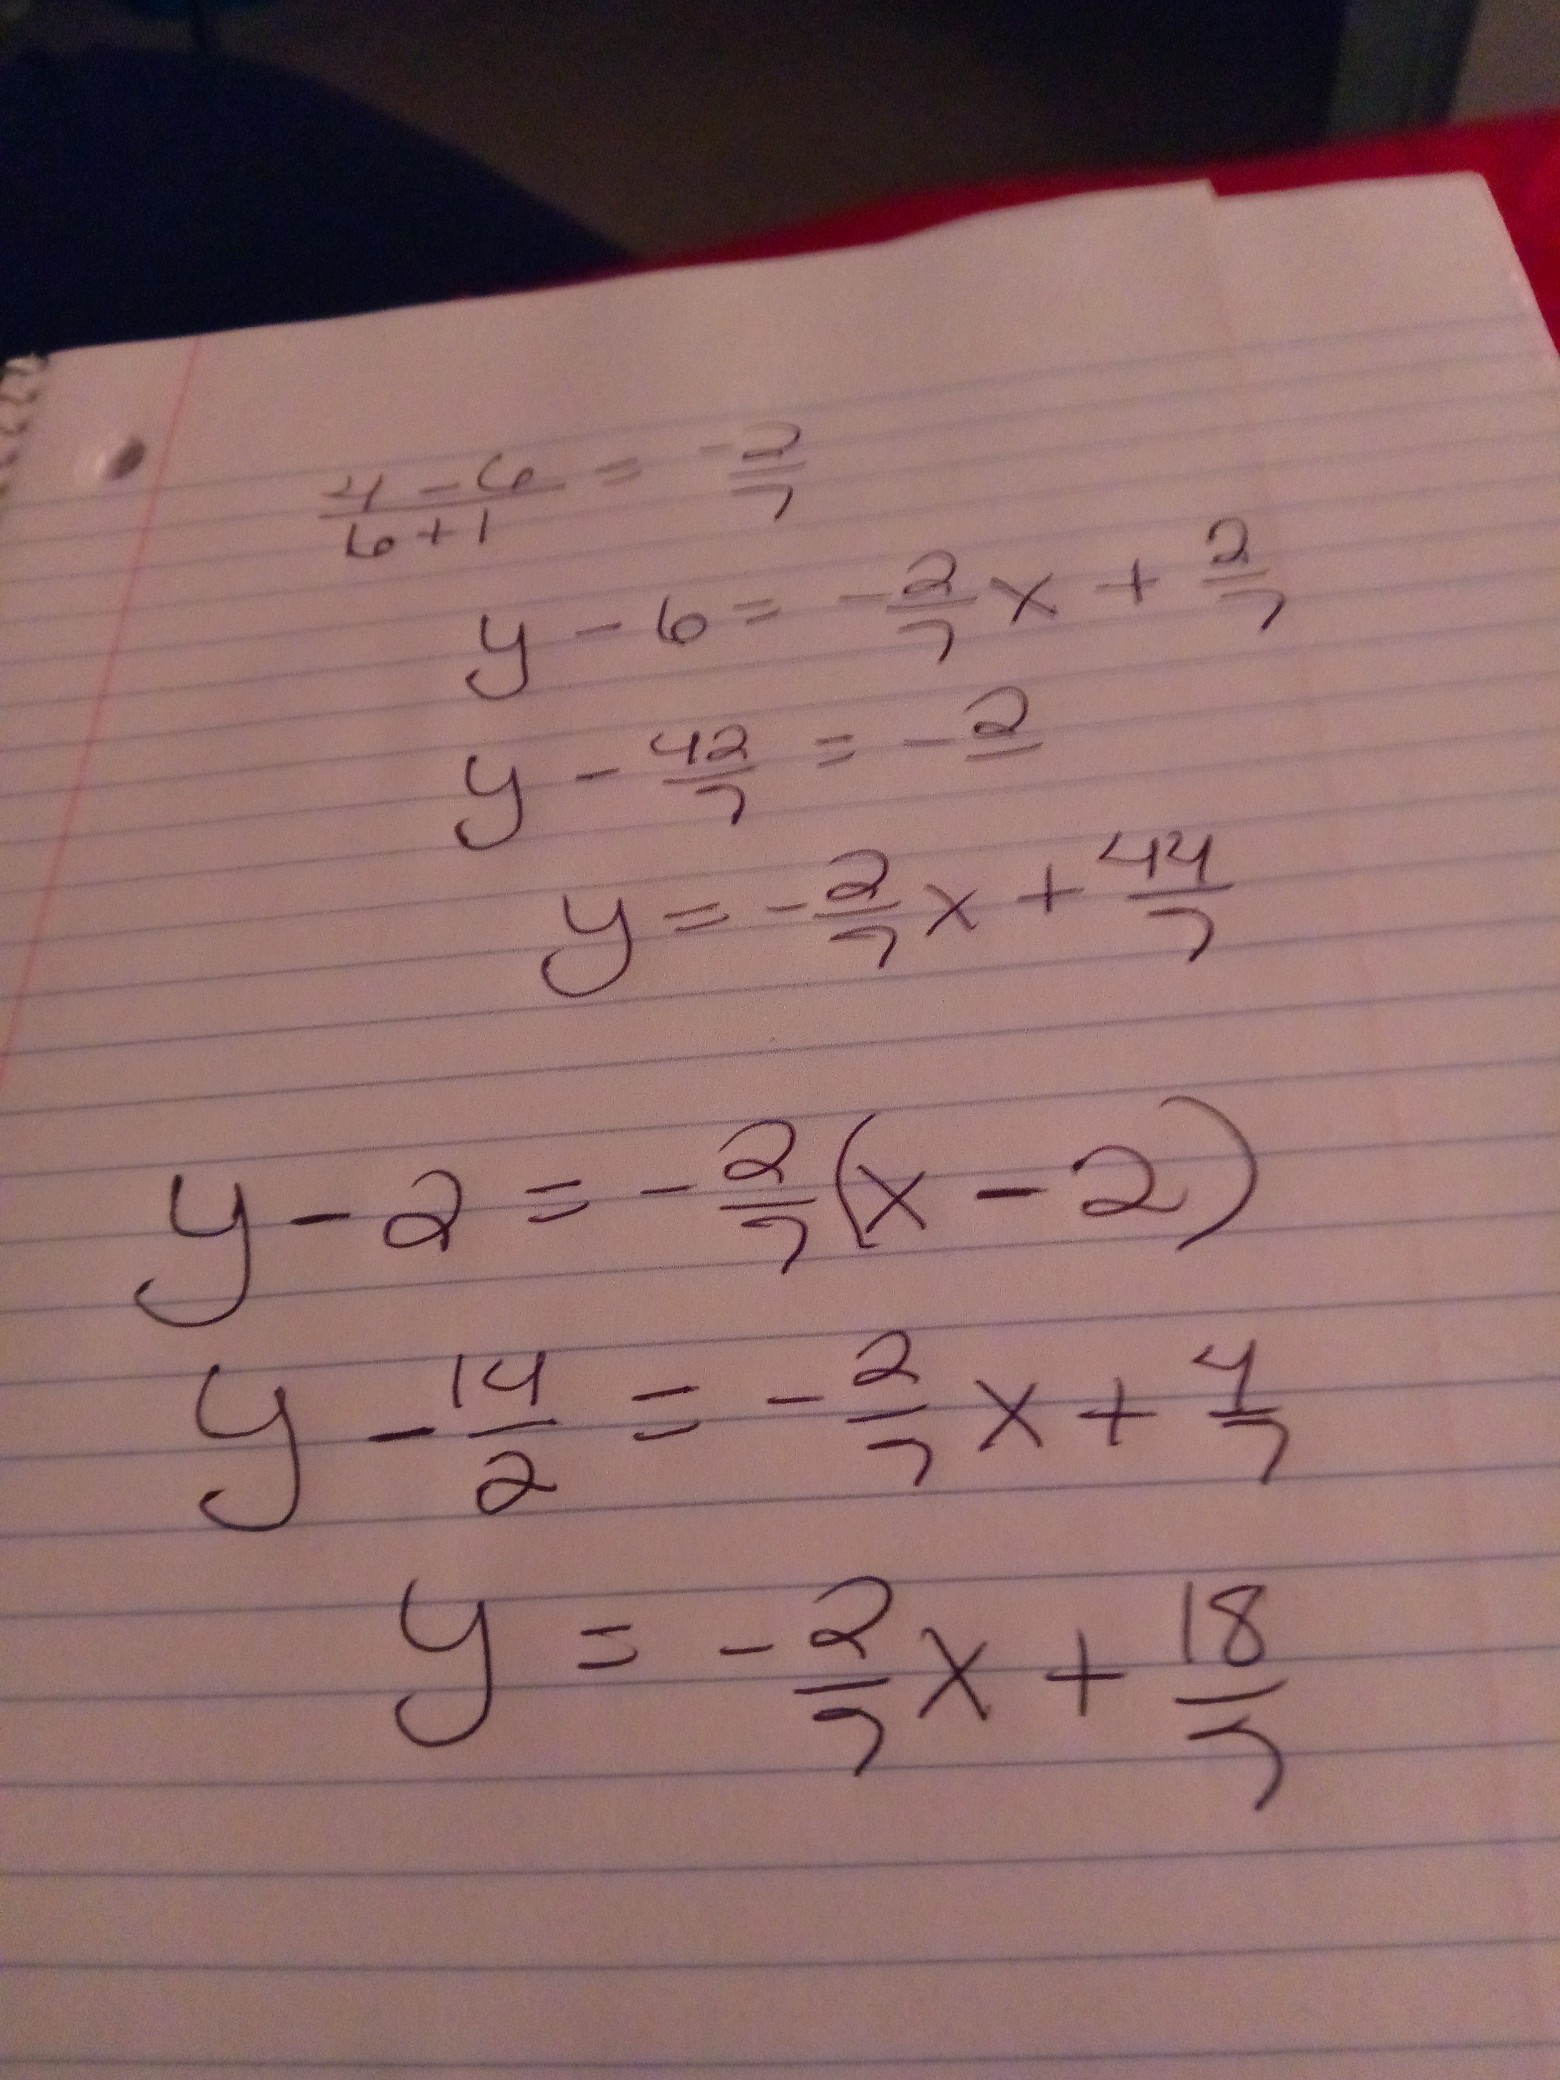 4 - 6 / 6 + 1 = -2/7
y - 6 = -2/7 x + 2/7
y - 42/7 = - 2/
y = -2/7 x + 44/7
y - 2 = -2/7 (x - 2)
y - 14/2 = -2/7 x + 4/7
y = -2/7 x + 18/7